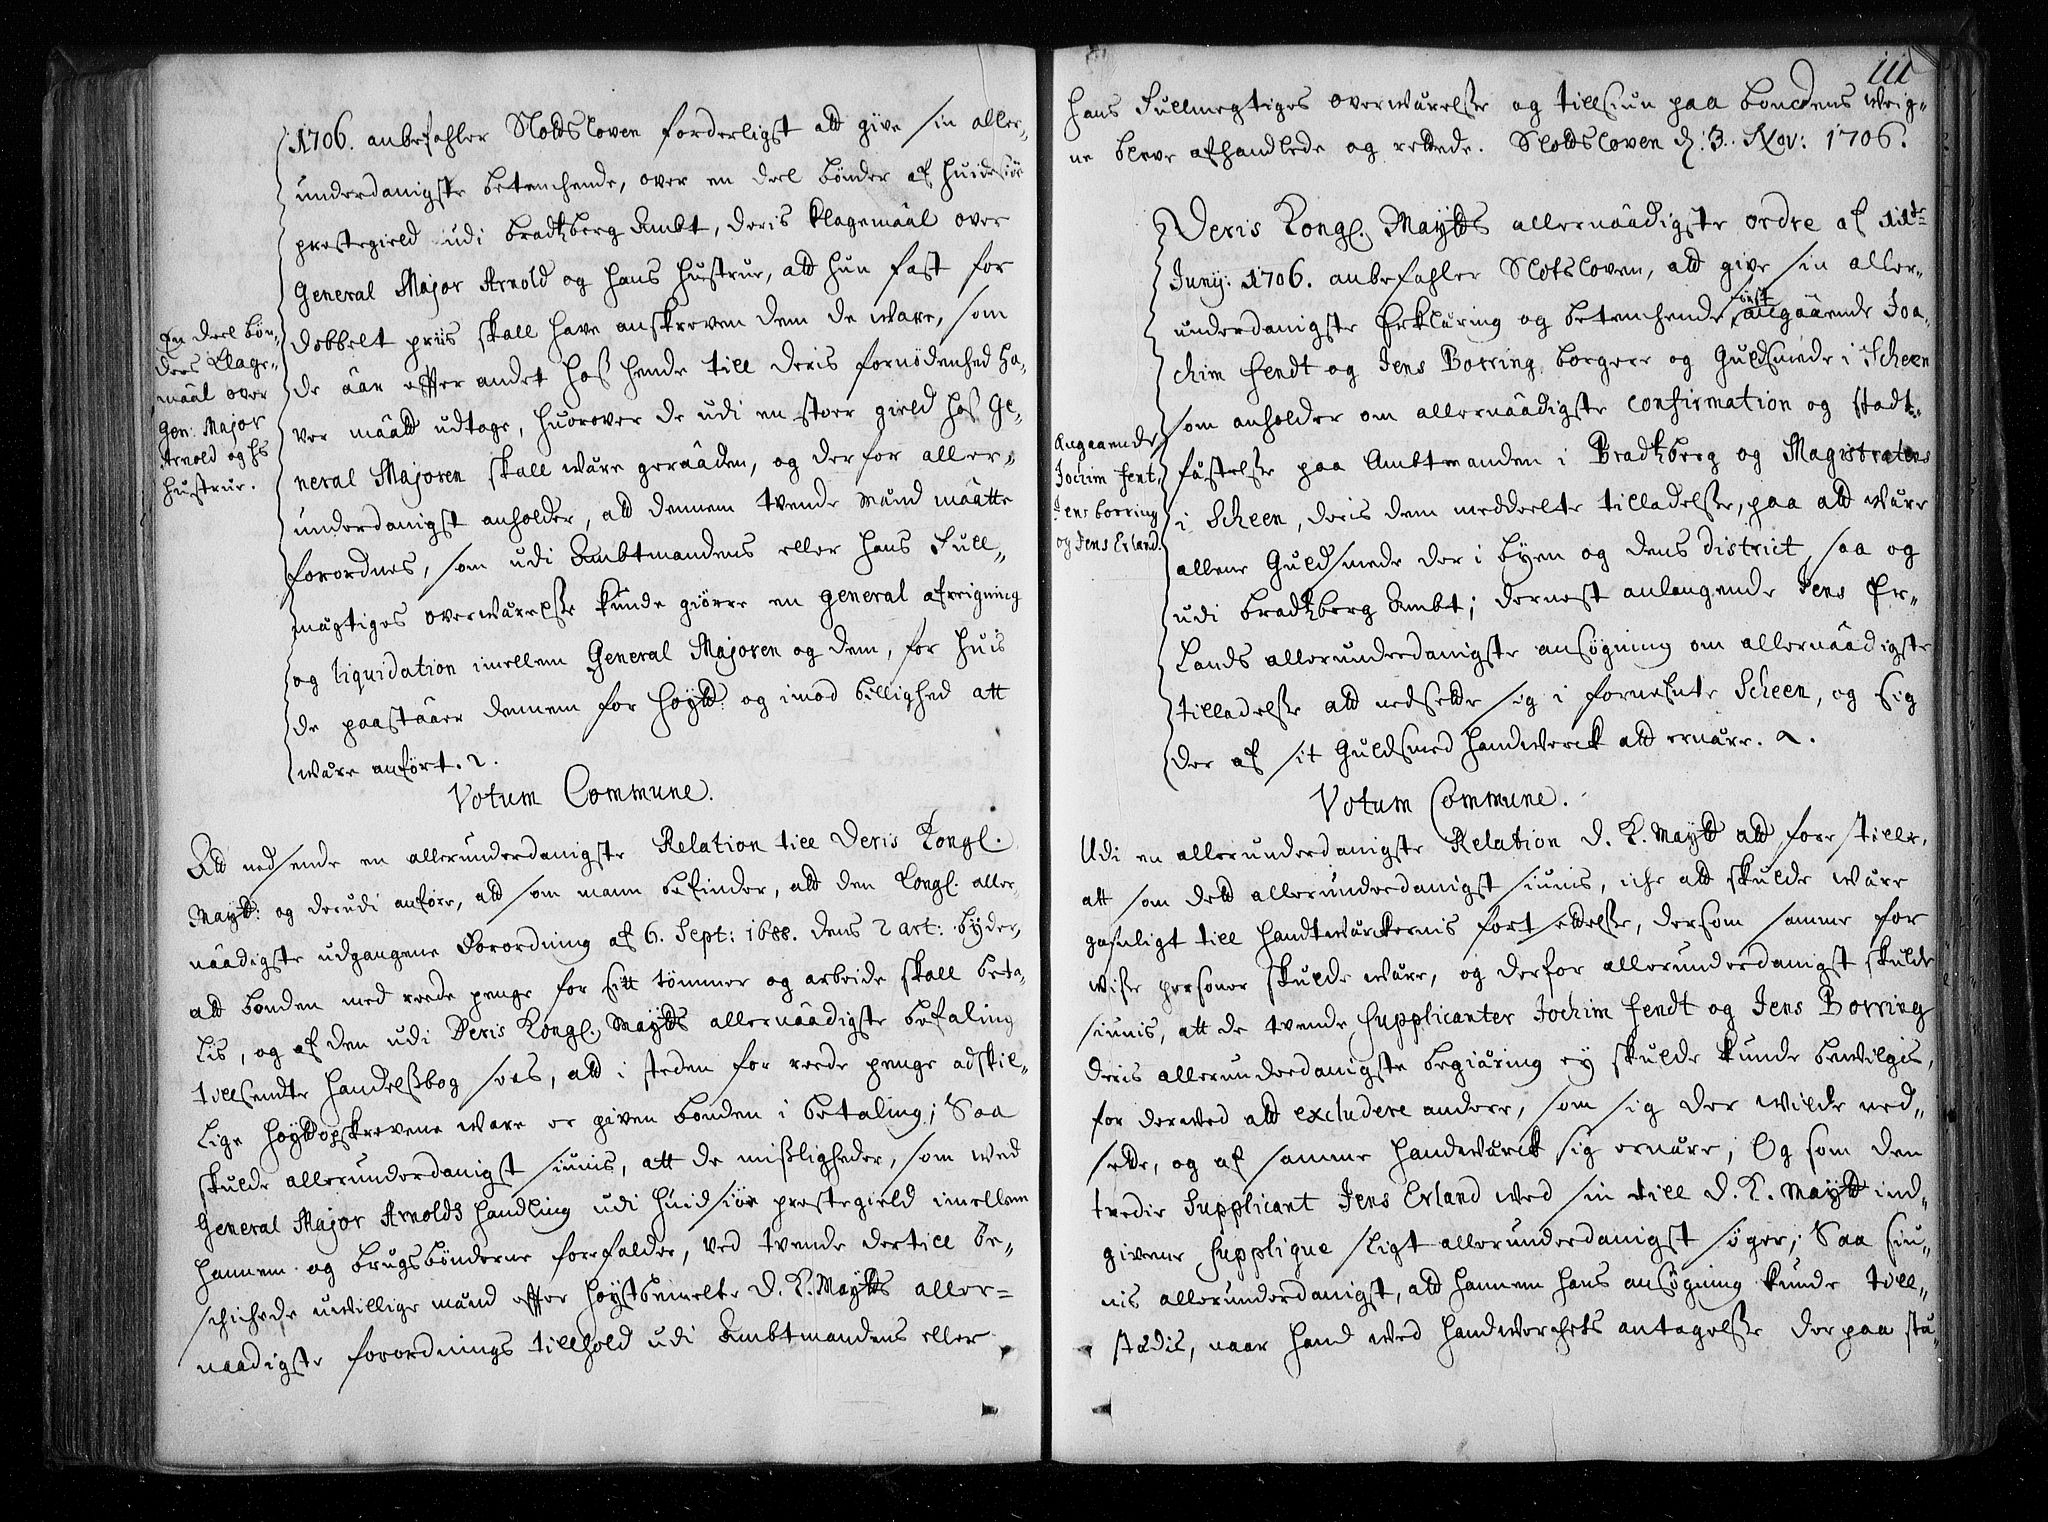 1706. anbefahler Slotdsloven forderligst att give sin aller-
underdanigste betenchende, over en deel bønder af Huidesiøe
prestegield udi Bradtzberg Ambt, deris Klagemaal over
General Major Arnold og hans hustrue, att hun fast for
dobbelt priis skall have anskreven dem de ware, som
de aar effter andet hoß hende till deris fornødenhed ha-
ver maatt udtage, huorover de udi en stoer gield hoß Ge-
neral Majoren skall wære geraaden, og derfor aller-
underdanigst anholder, att dennem tvende Mænd maatte
forordnes, som udi Ambtmandens eller hans Full-
mægtiges overwærelße kunde giørre en general afreigning
og liquidation imellem General Majoren og dem, for huis
de paastaaer dennem for høyt og imod billighed att
wære anført. 2.
En deel bøn-
ders Klage-
maal over
Gen: Major
Arnold og hs
hustrue.
Votum Commune.
Att nedsende en allerunderdanigste Relation till Deris Kongl.
Maytt: og derudi anføre, att som mann befinder, att den Kongl. aller-
naadigste udgangene Forordning af 6. Sept: 1688. dens 2 art: byder,
att bonden med reede penge for sitt tømmer og arbeide skall beta-
lis, og af den udi Deris Kongl. Maytts allernaadigste befaling
tillsendte handelßbog sees, att i steden for reede penge adskil-
lige høytopskrevene ware er given bonden i betaling; Saa
skulde allerunderdanigst siunis, att de mißligheder, som wed
General Major Arnolds handling udi Huidsiøe prestegield imellem
hannem og brugsbønderne forefalder, ved tvende dertill be-
schichede uwillige mænd effter høystbemelte D. K. Maytts aller-
naadigste forordnings tillhold udi Ambtmandens eller
111
hans Fullmegtiges overwærelße og tillsiun paa bondens weig-
ne bleve afhandlede og rettede. Slotdsloven d: 3. Nov: 1706.
Deris Kongl. Maytts allernaadigste ordre af 11te
Juny: 1706. anbefahler Slotsloven, att give sin aller-
underdanigste Erklæring og betenchende, først angaaende Joa-
chim Fendt og Jens Borring borgere og Guldsmede i Scheen
som anholder om allernaadigste confirmation og stadt-
fæstelße paa Ambtmanden i Bradtzberg og Magistratens
i Scheen, deris dem meddeelte tilladelße, paa att wære
allene Guldsmede der i byen og dens district, saa og
udi Bradtzberg Ambt; dernest anlangende Jens Er-
lands allerunderdanigste ansøgning om allernaadigste
tilladelße att nedsette sig i fornefnte Scheen, og sig
der af sit Guldsmed handwerck att ernære. 2.
Angaaende
Jochim Fent,
Jens Borring
og Jens Erland.
Votum Commune.
Udi en allerunderdanigste Relation D. K. Maytt att forestille,
att som dett allerunderdanigst siunis, iche att skulde wære
gafnligt till handtwærckernis fortsettelße, dersom samme for
wiße personer skulde wære, og derfor allerunderdanigst skulde
siunis, att de tvende Supplicanter Jochim Fendt og Jens Borring
deris allerunderdanigste begiæring ey skulde kunde bewilgis,
for derwed att excludere andere, som sig der wilde ned-
sette, og af samme handwærck sig ernære; Og som den
tredie Supplicant Jens Erland wed sin till D. K. Maytt ind-
givene Supplique sligt allerunderdanigst søger; Saa siu-
nis allerunderdanigst, att hannem hans ansøgning kunde till-
stædis, naar hand wed handwerchets antagelße der paa stæ-